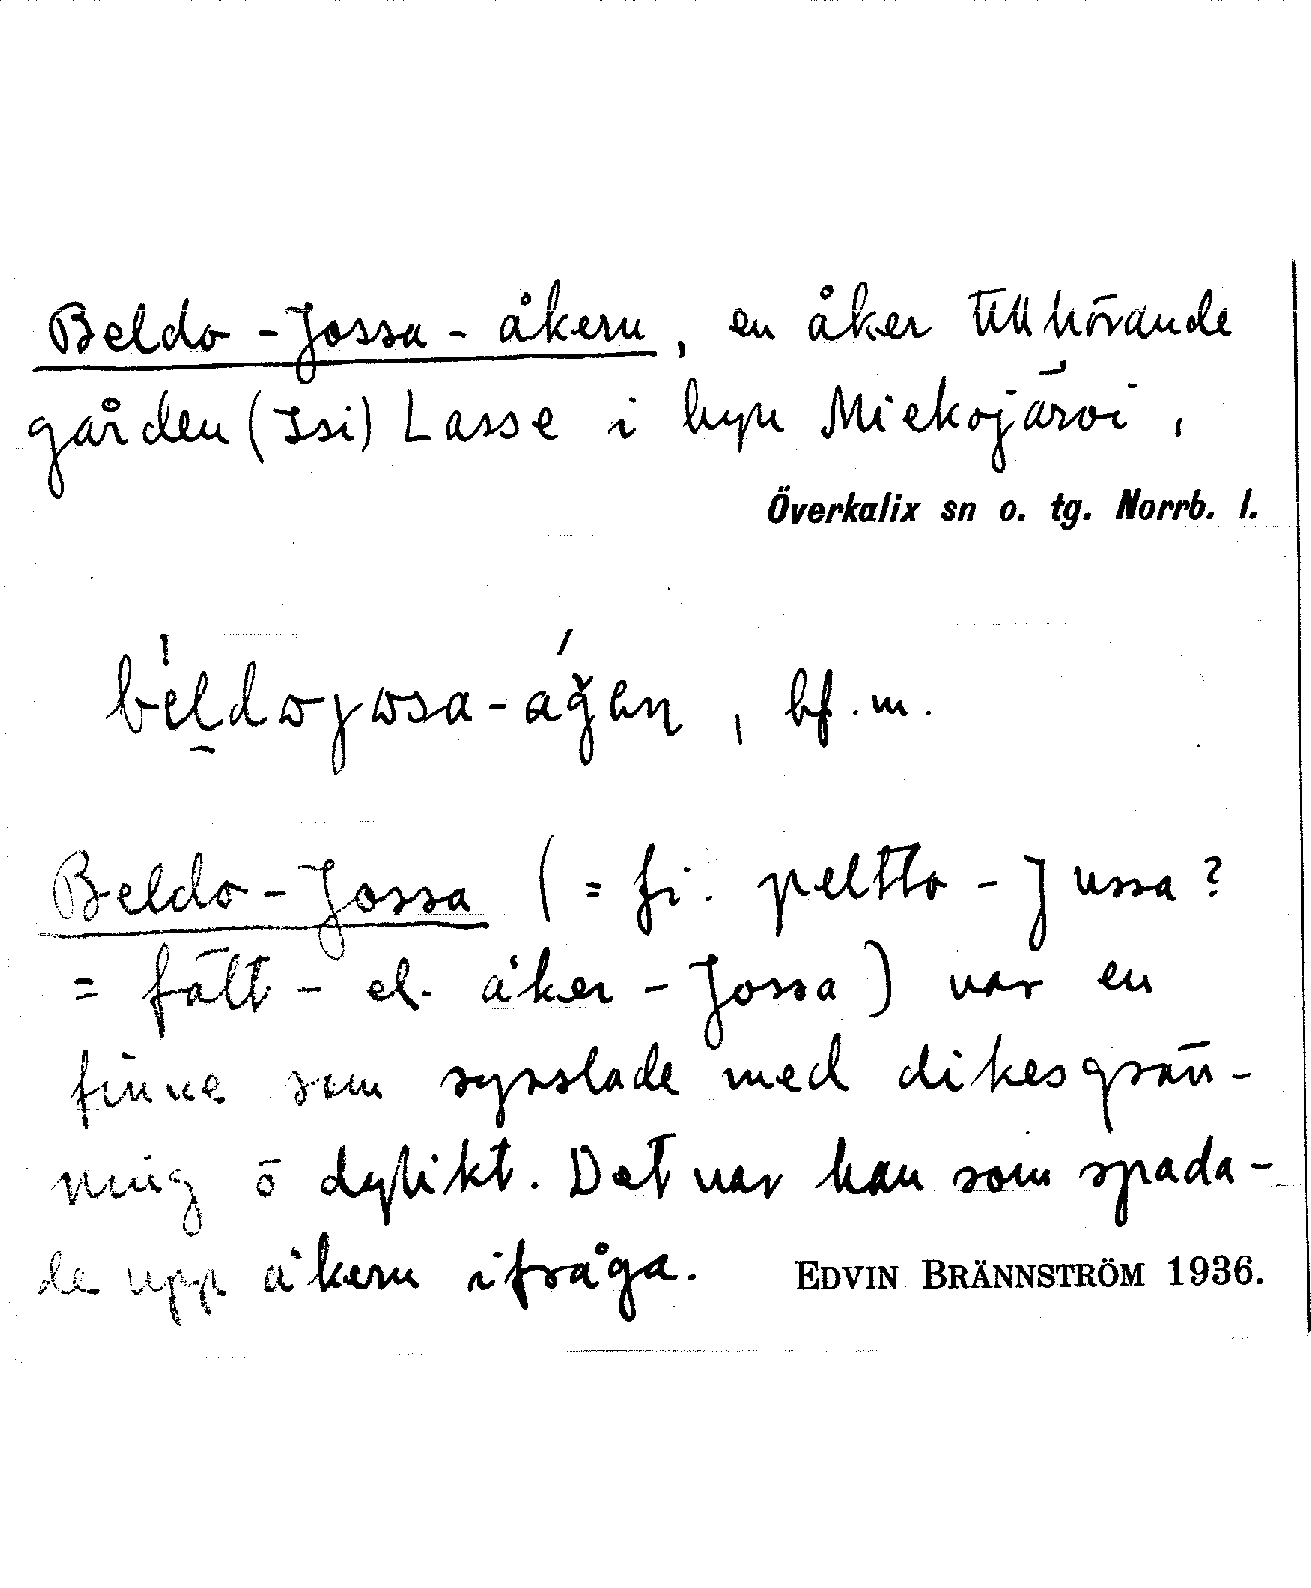 Beldo-Jossa-åkern, en åker tillhörande
gården (Isi) Lasse i byn Miekojärvi,
Överkalix sn o. tg. Norrb. l.
bf. m.
Beldo-Jossa (= fi. peltto-Jussa?
= fält- el. åker-Jossa) var en
finne som sysslade med dikesgräv-
ning o dylikt. Det var han som spada-
de upp åkern ifråga.
EDVIN BRÄNNSTRÖM 1936.